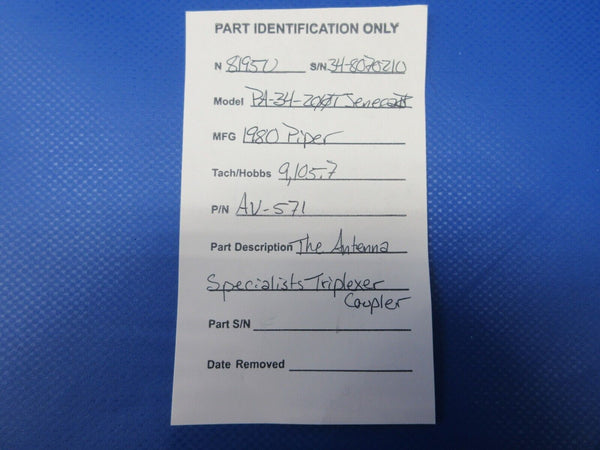 PART IDENTIFICATION ONLY
N 8195U S/N 34-8070210
Model PA-34-200T Seneca II
MFG 1980 Piper
Tach/Hobbs 9,105.7
P/N AV-571
Part Description The Antenna
Specialists Triplexer
Coupler
Part S/N
Date Removed